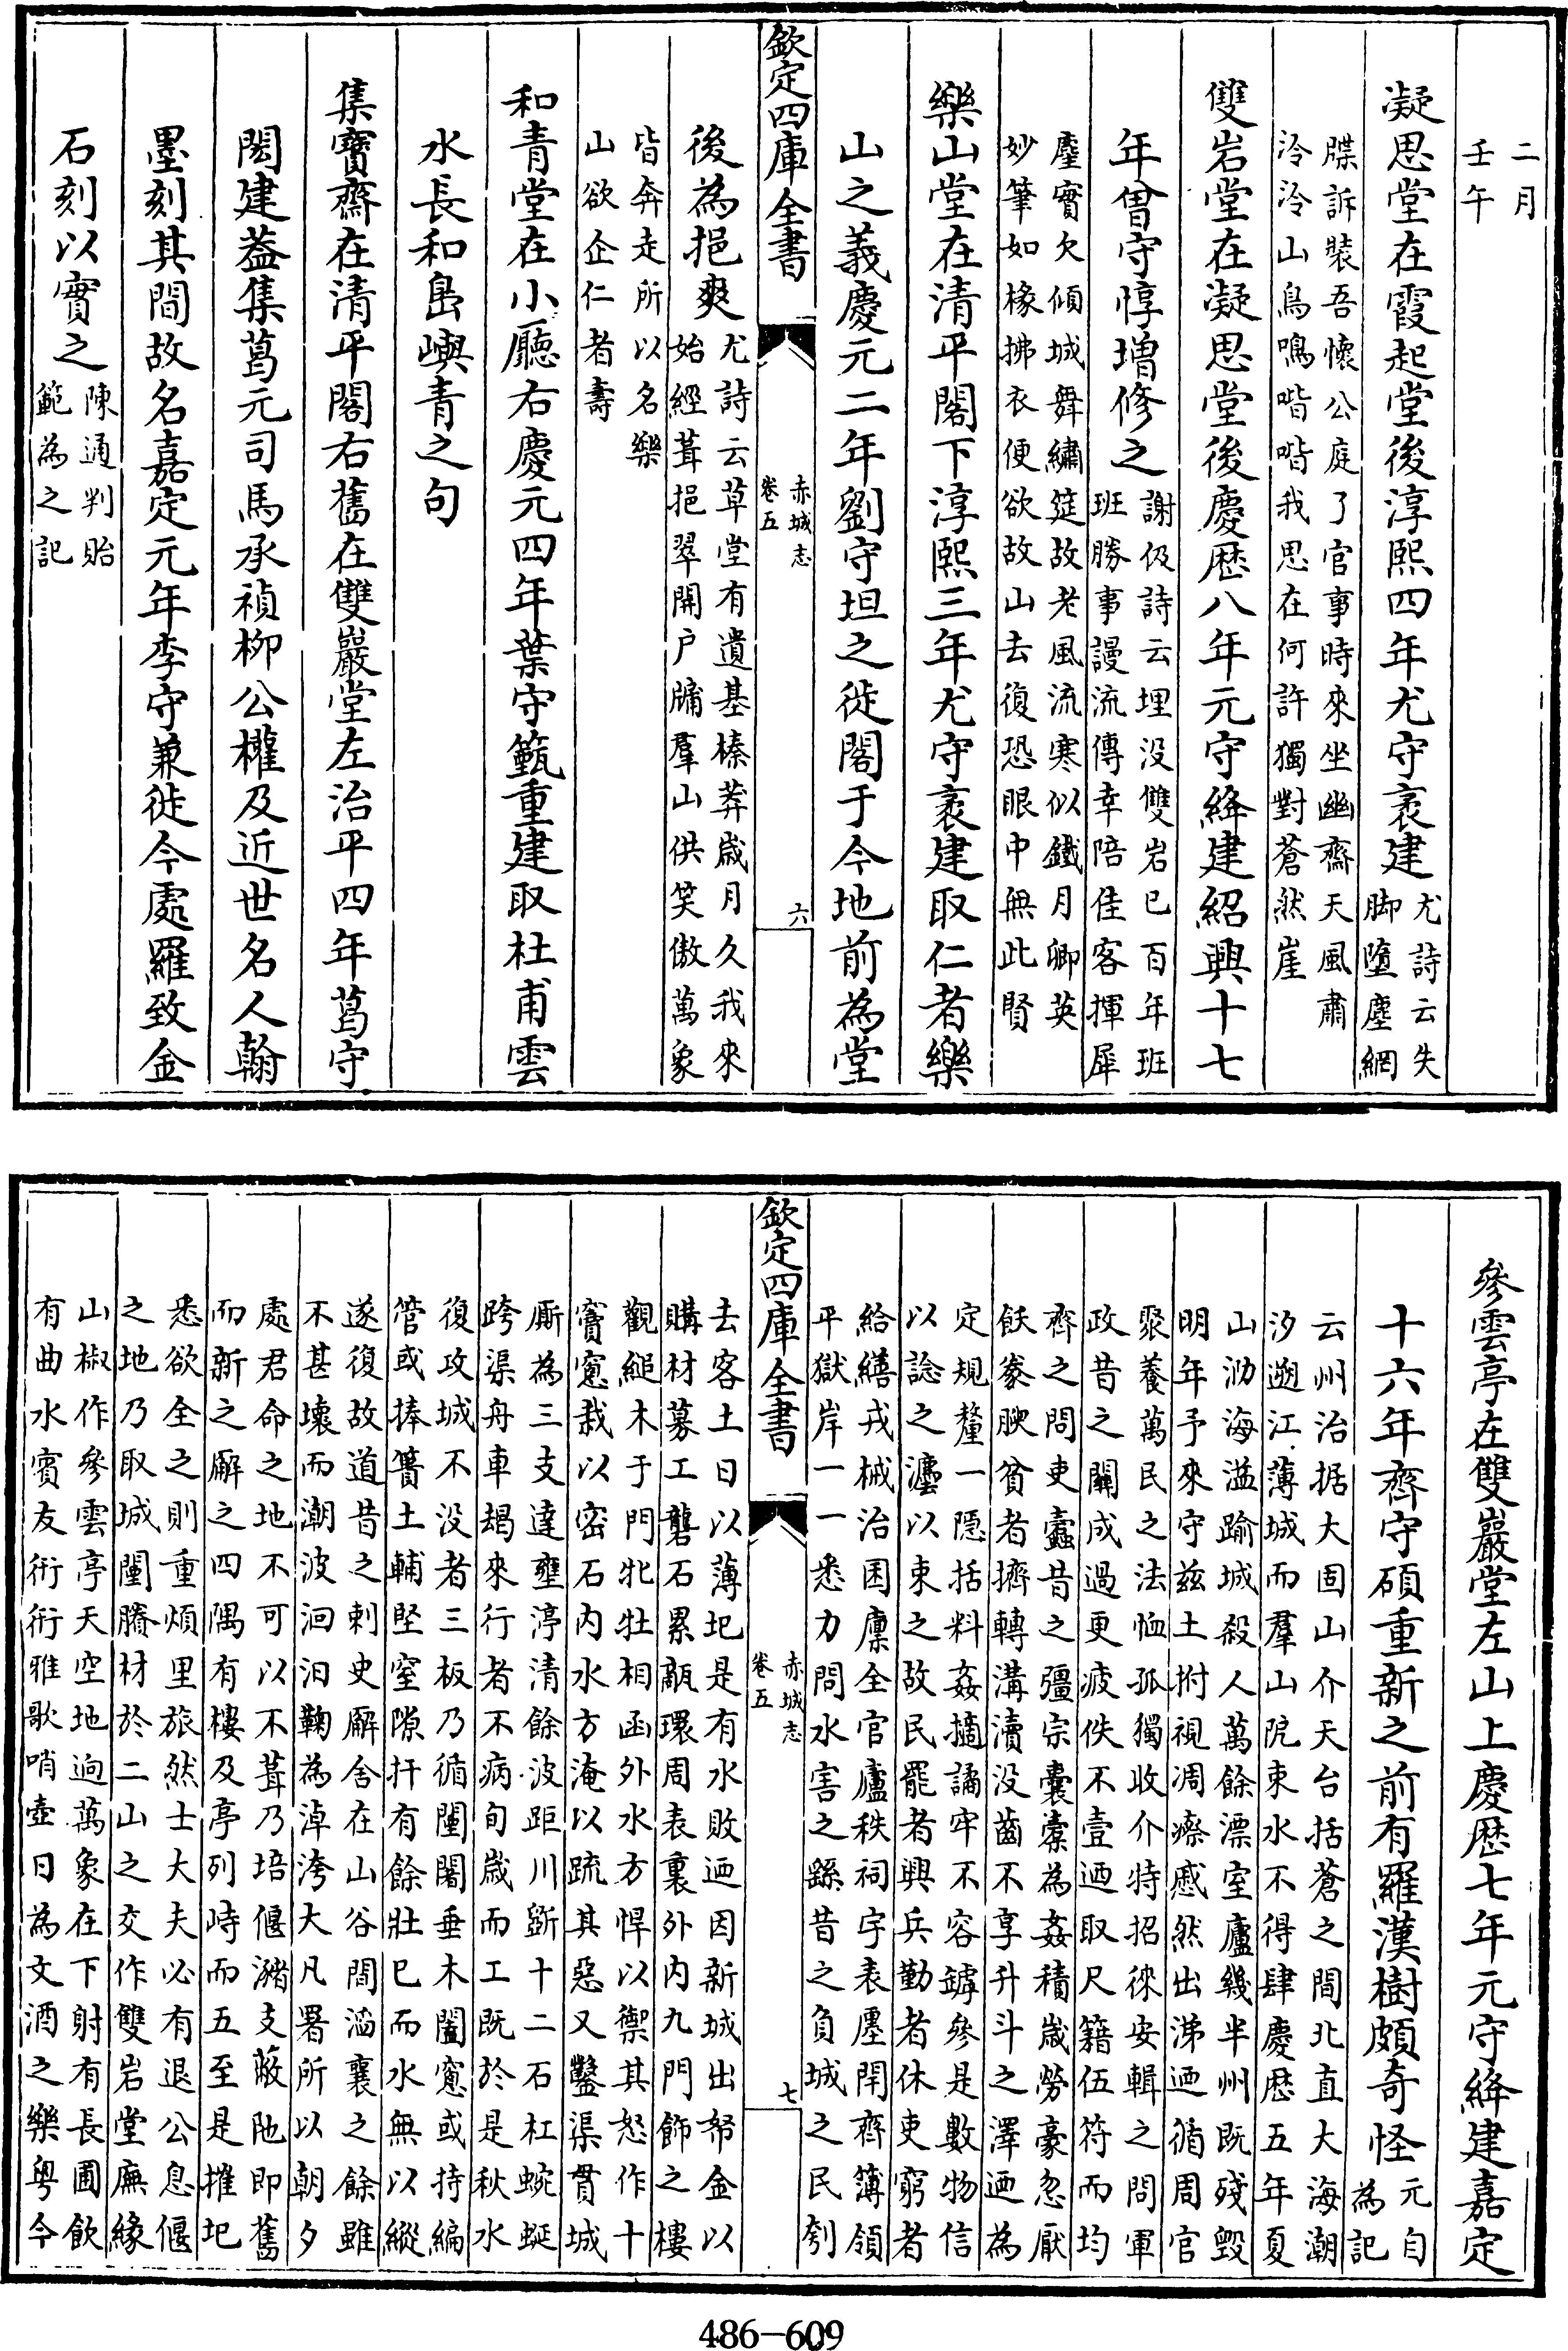 二月
壬午
凝思堂在霞起堂後淳熙四年尤守袤建尤詩云失脚墮塵網
牒訴裝吾懷公庭了官事時來坐幽齋天風肅
泠泠山鳥鳴喈喈我思在何許獨對蒼然崖
雙岩堂在凝思堂後慶歴八年元守絳建紹興十七
年曾守惇増修之謝伋詩云埋没雙岩已百年班班勝事謾流傳幸陪佳客揮犀
麈實欠傾城舞繡筵故老風流寒似鐵月卿英
妙筆如椽拂衣便欲故山去復恐眼中無此賢
樂山堂在清平閣下淳熙三年尤守袤建取仁者樂
山之義慶元二年劉守坦之徙閣于今地前為堂
欽定四庫全書
赤城志
卷五
六
後為挹爽尤詩云草堂有遺基榛莽嵗月久我來始經葺挹翠開户牖羣山供笑傲萬象
皆奔走所以名樂
山欲企仁者壽
和青堂在小廳右慶元四年葉守籈重建取杜甫雲
水長和島嶼青之句
集寳齋在清平閣右舊在雙巖堂左治平四年葛守
閎建葢集葛元司馬承禎柳公權及近世名人翰
墨刻其間故名嘉定元年李守兼徙今處羅致金
石刻以實之陳通判貽範為之記
參雲亭在雙巖堂左山上慶歴七年元守絳建嘉定
十六年齊守碩重新之前有羅漢樹頗奇怪元自為記
云州治据大固山介天台括蒼之間北直大海潮
汐遡江薄城而羣山阸束水不得肆慶歴五年夏
山泐海溢踰城殺人萬餘漂室廬幾半州既殘毁
明年予來守兹土拊視凋瘵慼然出涕迺循周官
聚養萬民之法恤孤獨收介特招徠安輯之問軍
政昔之闕成過更疲佚不壹迺取尺籍伍符而均
齊之問吏蠧昔之彊宗嚢橐為姦積嵗勞豪忽厭
飫豢腴貧者擠轉溝瀆没齒不享升斗之澤迺為
定規釐一隱括料姦擿譎牢不容罅參是數物信
以諗之瀍以束之故民罷者興兵勤者休吏窮者
給繕戎械治囷廪全官廬秩祠宇表廛閈齊簿領
平獄岸一一悉力問水害之繇昔之負城之民刳
欽定四庫全書
赤城志
卷五
七
去客土日以薄圮是有水敗迺因新城出帑金以
購材募工礱石累甋環周表裏外内九門飾之樓
觀縋木于門牝牡相函外水方悍以禦其怒作十
竇窻栽以密石内水方淹以疏其惡又鑿渠貫城
厮為三支達壅渟清餘波距川斵十二石杠蜿蜒
跨渠舟車朅來行者不病旬嵗而工既於是秋水
復攻城不没者三板乃循闉闍垂木闔窻或持編
管或捧簣土輔堅窒隙扞有餘壯巳而水無以縱
遂復故道昔之刺史廨舍在山谷間滔襄之餘雖
不甚壞而潮波洄汩鞠為淖洿大凡署所以朝夕
處君命之地不可以不葺乃培偃瀦支蔽阤即舊
而新之廨之四隅有樓及亭列峙而五至是摧圮
悉欲全之則重煩里旅然士大夫必有退公息偃
之地乃取城闉賸材於二山之交作雙岩堂廡緣
山椒作參雲亭天空地逈萬象在下射有長圃飲
有曲水賓友衎衎雅歌哨壺日為文酒之樂粤今
486-609